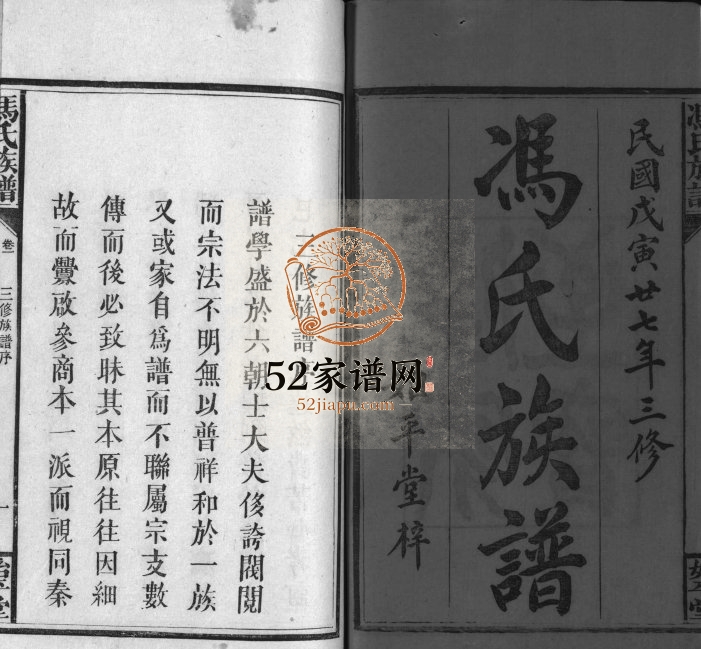 民國戊寅廿七年三修
馮氏族譜
平堂梓
馮氏族譜
三修族譜
譜學盛於六朝士大夫侈誇閥閱
而宗法不明無以普祥和於一族
又或家自爲譜而不聯屬宗支數
傳而後必致昧其本原往往因細
故而釁啟參商本一派而視同秦
馮氏族譜
卷一
三修族譜序
一
52家谱网
52jiapu.com